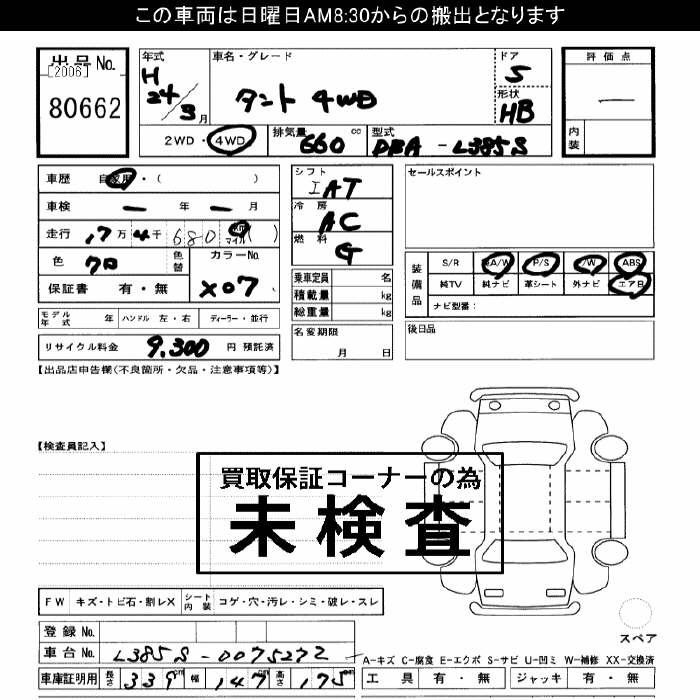 この車両は日曜日AM8:30からの搬出となります
出品No.
[2006]
80662
年式 H 24/3月
車名・グレード
タント 4WD
ドア 5
形状 HB
2WD・4WD
排気量 660 cc
型式 DBA-L385S
評価点
―
内装
車歴 自家用・( )
車検 ― 年 ― 月
走行 17万4千680 マイル ( )
色 クロ 色替 カラーNo. X07
保証書 有・無
モデル年式 年 ハンドル 左・右 ディーラー・並行
リサイクル料金 9,300 円 預託済
シフト IAT
冷房 AC
燃料 G
乗車定員 名
積載量 kg
総重量 kg
名変期限
月 日
セールスポイント
装備品
S/R A/W P/S P/W ABS
純TV 純ナビ 革シート 外ナビ エアB
ナビ型番:
後日品
【出品店申告欄(不良箇所・欠品・注意事項等)】
【検査員記入】
買取保証コーナーの為
未検査
FW キズ・トビ石・割レX シート内装 コゲ・穴・汚レ・シミ・破レ・スレ
スペア
登録No.
車台No. L385S-0075272
A-キズ C-腐食 E-エクボ S-サビ U-凹ミ W-補修 XX-交換済
車庫証明用 長さ 339cm 幅 147cm 高さ 175cm
工具 有・無 ジャッキ 有・無